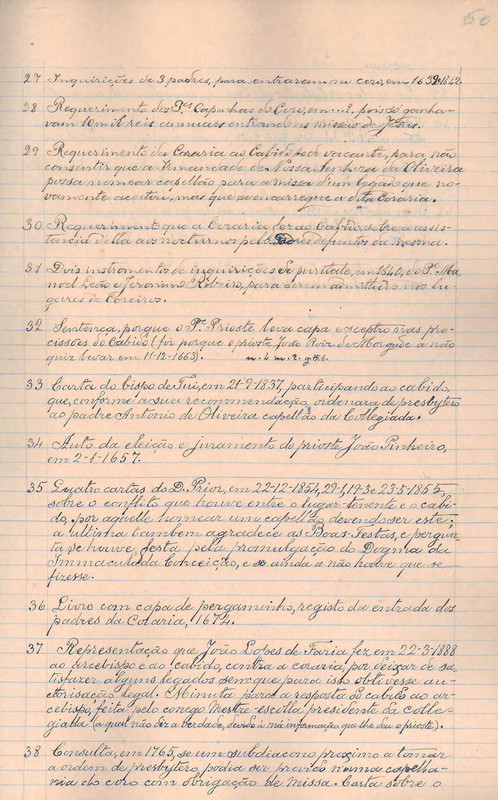 60
27 Inquirições de 3 padres, para entrarem no coro, em 1639 e 1642.
28 Requerimento dos P.es Capinhas do Coro, em ...?, pois só ganha-
vam 10 mil reis annuaes entrando a missão de
29 Requerimento da Coraria ao Cabido sede vacante, para não
consentir que a Irmandade de Nossa Senhora da Oliveira
possa nomear capellão para a missa d'um legado que no-
vamente aceitou, mas que se encarregue a dita Coraria.
30 Requerimento que a Coraria fez ao Cabido, sobre a assis-
tencia della aos nocturnos pelos Padres defuntos da mesma.
31 Dois instromentos de inquirições de puritate, em 1640, do P.e Ma-
noel Leão e Jeronimo Ribeiro, para serem admittidos nos lu-
gares de Coreiros.
32 Sentença, porque o P.e Prioste leva capa excepto nas pro-
cissões do Cabido (foi porque o prioste João Roiz de Morgade a não
quiz levar em 11-12-1663). n. 4 m. 2. g
33 Carta do bispo de Tui, em 21-9-1837, participando ao cabido,
que, conforme a sua recommendação, ordenara de presbytero
ao padre Antonio de Oliveira capellão da Collegiada.
34 Auto da eleição e juramento do prioste João Pinheiro,
em 2-1-1657.
35 Quatro cartas do D. Prior, em 22-12-1854, 29-1, 19-3 e 23-5-1855,
sobre o conflito que houve entre o lugar-tenente e o cabi-
do, por aquelle nomear um capellão devendo ser este;
a ultima tambem agradece as Boas-Festas, e pergun-
ta se houve festa pela promulgação do Dogma da
Immaculada Conceição, e se ainda a não houve que se
fizesse.
36 Livro com capa de pergaminho, registo da entrada dos
padres da Coraria, 1674.
37 Representação que João Lopes de Faria fez em 22-3-1888
ao arcebispo e ao cabido, contra a coraria por deixar de sa-
tisfazer alguns legados sem que para isso obtivesse au-
ctorisação legal. Minuta para a resposta do cabido ao ar-
cebispo, feita pelo conego Mestre-escolla presidente da colle-
giada (a qual não diz a verdade, devido á má informação que lhe deu o prioste).
38 Consulta, em 1765, se um subdiacono proximo a tomar
a ordem de presbytero, podia ser provido numa capella-
nia do coro com obrigação de missa. Carta sobre o